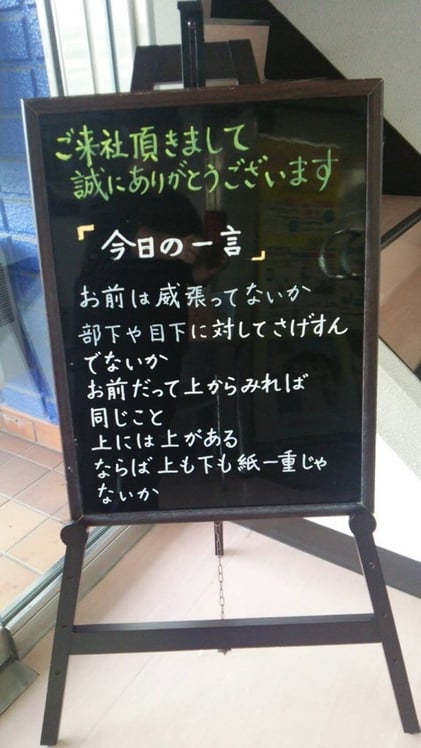 ご来社頂きまして
誠にありがとうございます
「今日の一言」
お前は威張ってないか
部下や目下に対してさげすん
でないか
お前だって上からみれば
同じこと
上には上がある
ならば上も下も紙一重じゃ
ないか